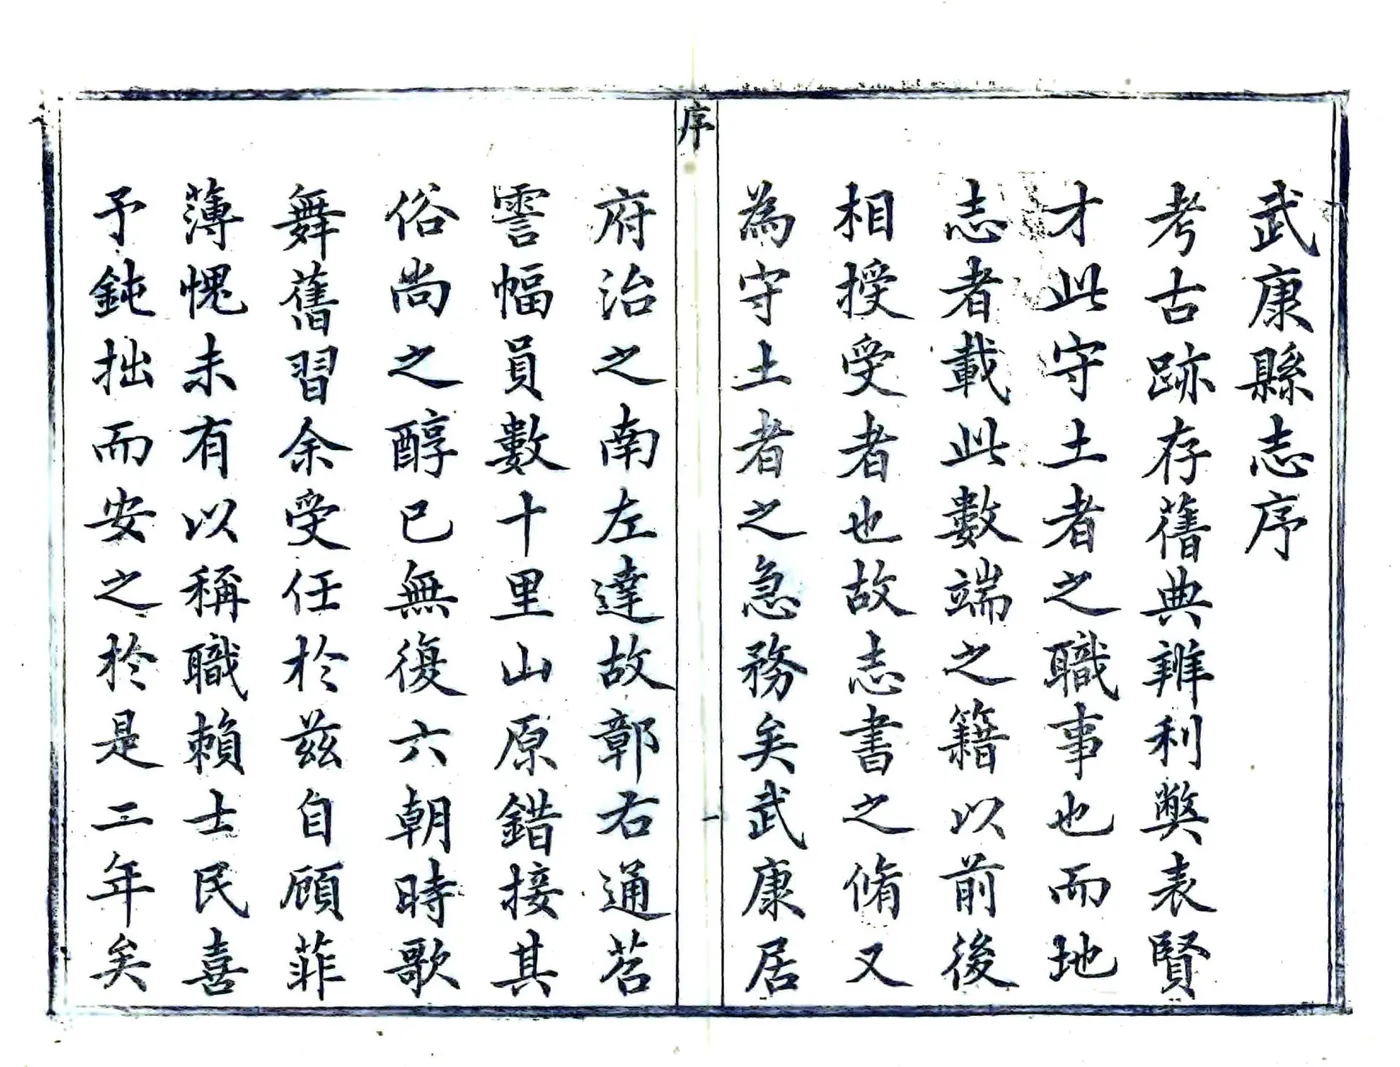 武康縣志序
考古跡存舊典辨利獘表賢
才此守土者之職事也而地
志者載此數端之籍以前後
相授受者也故志書之脩又
為守土者之急務矣武康居
序
一
府治之南左達故鄣右通苕
霅幅員數十里山原錯接其
俗尚之醇已無復六朝時歌
舞舊習余受任於茲自顧菲
薄愧未有以稱職賴士民喜
予鈍拙而安之於是二年矣